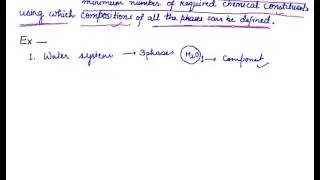 minimum number of required chemical constituents
using which compositions of all the phases can be defined.
Ex —
1. Water system → 3 phases H₂O 1 → Component